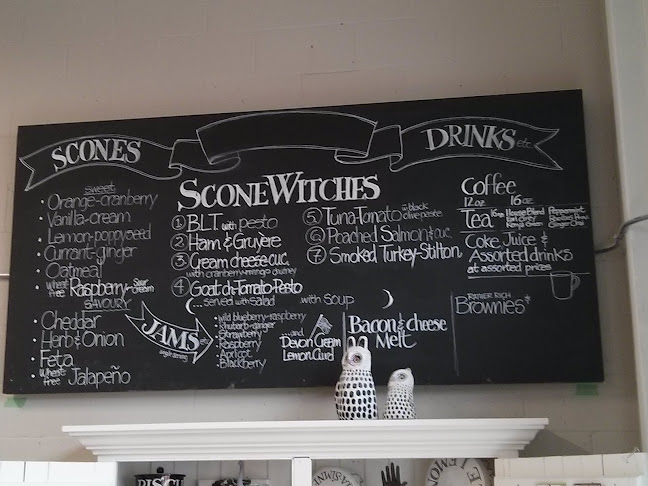 SCONES
sweet
Orange-cranberry
Vanilla-cream
Lemon-poppyseed
Currant-ginger
Oatmeal
wheat free Raspberry-Sour cream
SAVOURY
Cheddar
Herb & Onion
Feta
Wheat free Jalapeño
JAMS etc
single serving
wild blueberry-raspberry
rhubarb-ginger
Strawberry
Raspberry
Apricot
Blackberry
...and
Devon Cream
Lemon Curd
SCONEWITCHES
1 BLT with pesto
2 Ham & Gruyère
3 Cream cheese cuc.
with cranberry-mango chutney
4 Goat ch-Tomato-Pesto
5 Tuna-Tomato w black olive paste
6 Poached Salmon & cuc.
7 Smoked Turkey-Stilton
(...served with salad
with soup )
Bacon & cheese
Melt
DRINKS etc
Coffee
12 oz 16 oz
Tea 16oz House Blend Peppermint
Earl Grey
Coke Juice &
Assorted drinks
at assorted prices
RATHER RICH
Brownies